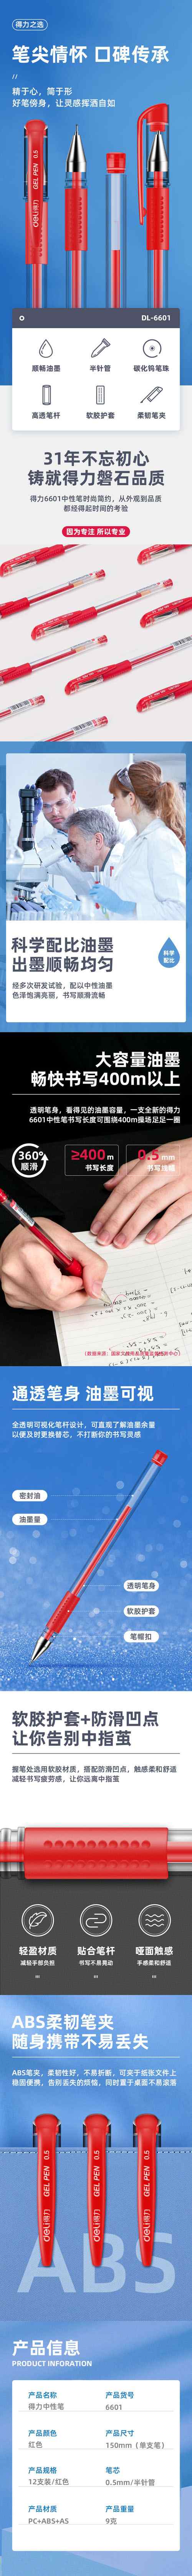 得力之选
笔尖情怀 口碑传承
//
精于心，简于形
好笔傍身，让灵感挥洒自如
deli得力 GEL PEN 0.5
DL-6601
顺畅油墨
半针管
碳化钨笔珠
高透笔杆
软胶护套
柔韧笔夹
31年不忘初心
铸就得力磐石品质
得力6601中性笔时尚简约，从外观到品质
都经得起时间的考验
因为专注 所以专业
科学配比油墨
出墨顺畅均匀
科学
配比
经多次研发试验，配以中性油墨
色泽饱满亮丽，书写顺滑流畅
大容量油墨
畅快书写400m以上
透明笔身，看得见的油墨容量，一支全新的得力
6601中性笔书写长度可围绕400m操场足足一圈
360°
顺滑
≥400m
书写长度
0.5mm
书写线幅
通透笔身 油墨可视
全透明可视化笔杆设计，可直观了解油墨余量
以便及时更换替芯，不打断你的书写灵感
密封油
油墨量
透明笔身
软胶护套
笔帽扣
软胶护套+防滑凹点
让你告别中指茧
握笔处选用软胶材质，搭配防滑凹点，触感柔和舒适
减轻书写疲劳感，让你远离中指茧
轻盈材质
减轻手部负担
贴合笔杆
书写不易晃动
哑面触感
手感柔和舒适
ABS柔韧笔夹
随身携带不易丢失
ABS笔夹，柔韧性好，不易折断，可夹于纸张文件上
稳固便携，告别丢失的烦恼，同时置于桌面不易滚落
deli得力 GEL PEN 0.5
deli得力 GEL PEN 0.5
deli得力 GEL PEN 0.5
ABS
产品信息
PRODUCT INFORATION
产品名称
得力中性笔
产品货号
6601
产品颜色
红色
产品尺寸
150mm（单支笔）
产品规格
12支装/红色
笔芯
0.5mm/半针管
产品材质
PC+ABS+AS
产品重量
9克